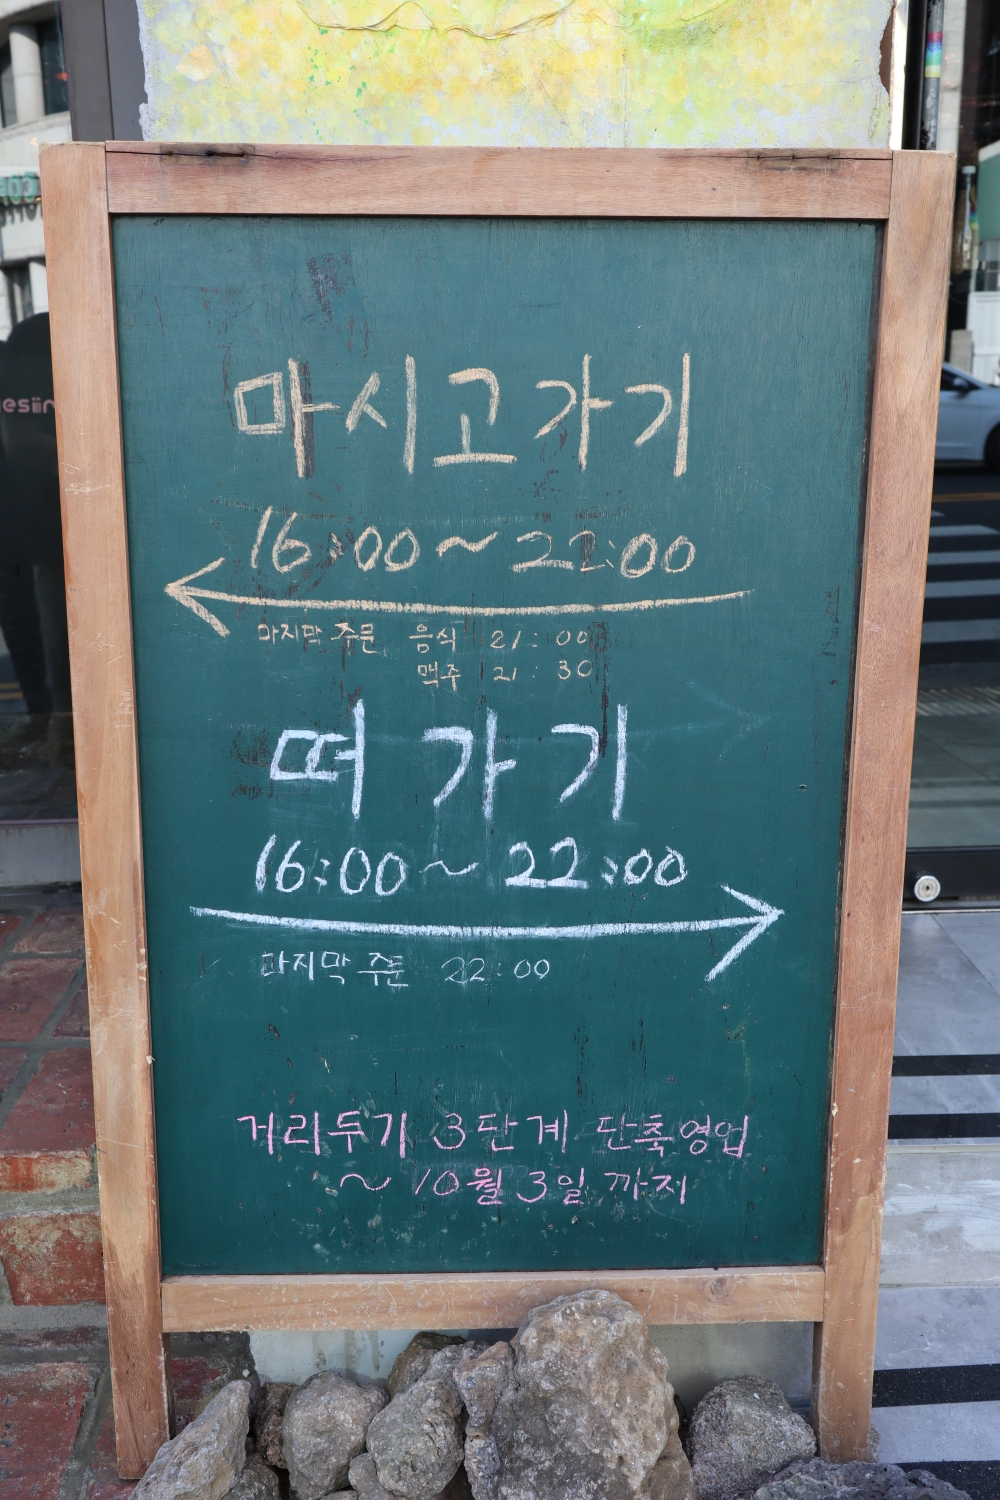 마시고가기
16:00~22:00
마지막 주문 음식 21:00
맥주 21:30
떠가기
16:00~22:00
마지막 주문 22:00
거리두기 3단계 단축영업
~10월 3일 까지